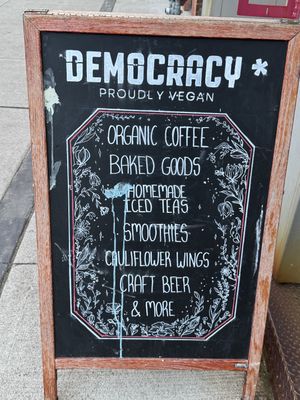 DEMOCRACY *
PROUDLY VEGAN
ORGANIC COFFEE
BAKED GOODS
HOMEMADE
ICED TEAS
SMOOTHIES
CAULIFLOWER WINGS
CRAFT BEER
& MORE